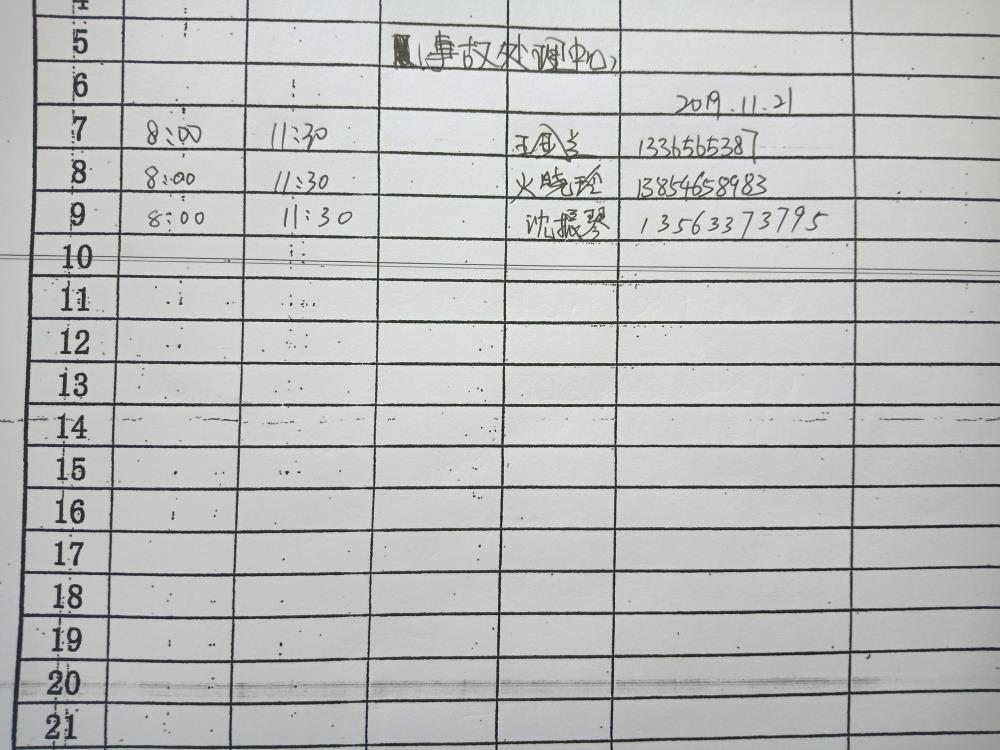 4
5 事故处理中心
6 2019.11.21
7 8:00 11:30 王国兰 13365655387
8 8:00 11:30 火晓玲 13854658983
9 8:00 11:30 沈振琴 13563373795
10
11
12
13
14
15
16
17
18
19
20
21